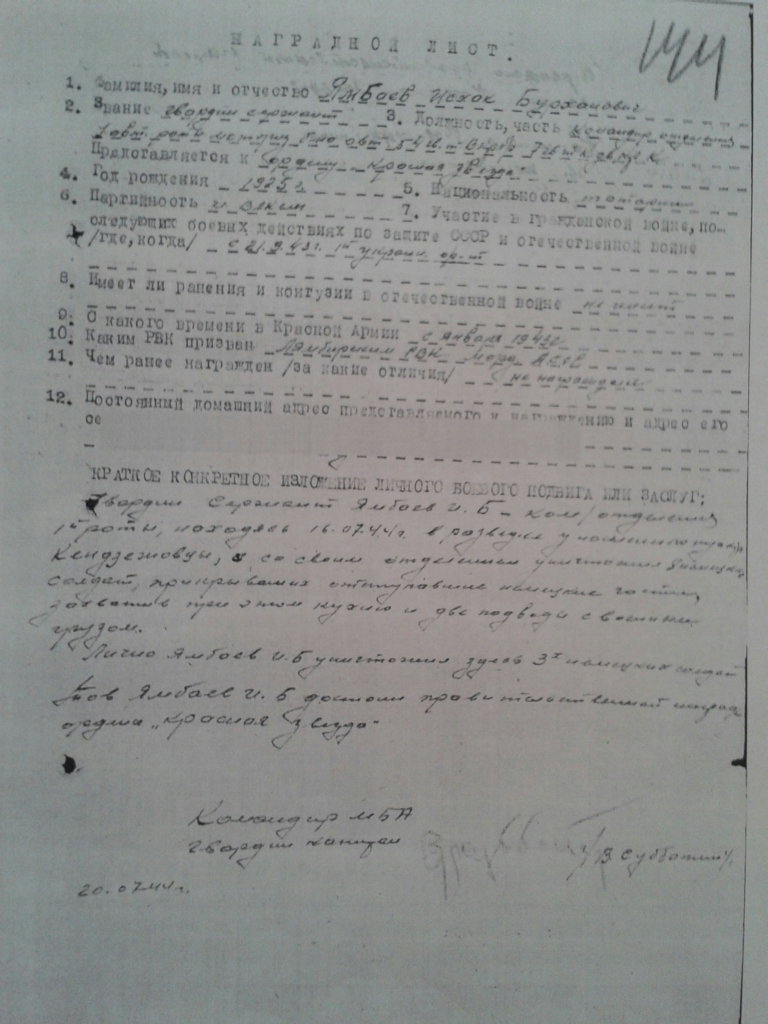 НАГРАДНОЙ ЛИСТ.
144
1. Фамилия, имя и отчество Ямбаев Исхак Бурханович
2. Звание гвардии сержант 3. Должность, часть командир отделения
Представляется к ордену "Красная звезда"
4. Год рождения 1925 г. 5. Национальность татарин
6. Партийность чл. ВЛКСМ 7. Участие в гражданской войне, по-
следующих боевых действиях по защите СССР и отечественной войне
/где, когда/ с 21.9.43 г. 1й украин. фр-т
8. Имеет ли ранения и контузии в отечественной войне не имеет
9. С какого времени в Красной Армии с января 1943 г.
10. Каким РВК призван Лямбирским РВК Морд. АССР
11. Чем ранее награжден /за какие отличия/ не награждался
12. Постоянный домашний адрес представляемого к награждению и адрес его
се
КРАТКОЕ КОНКРЕТНОЕ ИЗЛОЖЕНИЕ ЛИЧНОГО БОЕВОГО ПОДВИГА ИЛИ ЗАСЛУГ;
Гвардии Сержант Ямбаев И.Б – ком/отделения
1й роты, находясь 16.07.44 г. в разведке у населенного пункта
Кендзежовцы, со своим отделением уничтожил немецких
солдат, прикрывавших отступавшие немецкие части,
захватив при этом кухню и две подводы с военным
грузом.
Лично Ямбаев И.Б уничтожил здесь 3х немецких солдат
Тов Ямбаев И.Б достоин правительственной награды
ордена „Красная звезда"
Командир МБА
гвардии капитан /В. Субботин/.
20.07.44 г.